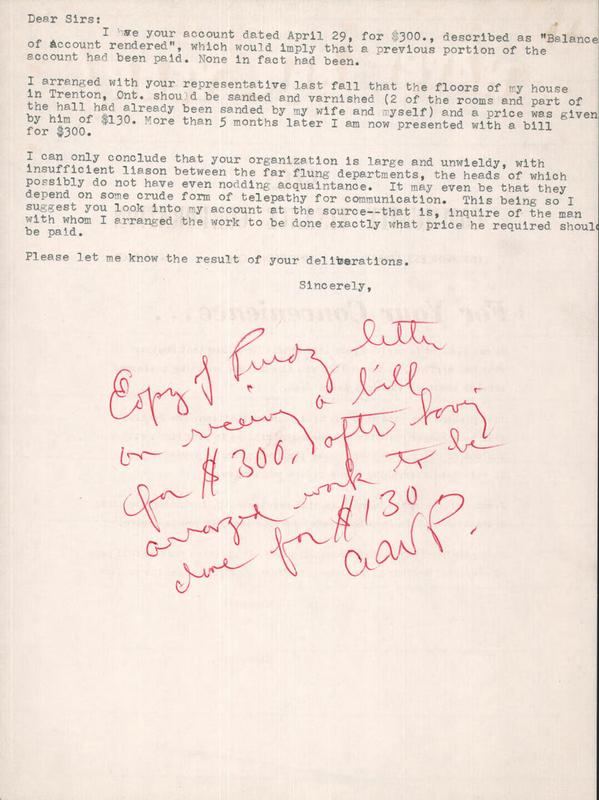 Dear Sirs:
I have your account dated April 29, for $300., described as "Balance
of Account rendered", which would imply that a previous portion of the
account had been paid. None in fact had been.
I arranged with your representative last fall that the floors of my house
in Trenton, Ont. should be sanded and varnished (2 of the rooms and part of
the hall had already been sanded by my wife and myself) and a price was given
by him of $130. More than 5 months later I am now presented with a bill
for $300.
I can only conclude that your organization is large and unwieldy, with
insufficient liason between the far flung departments, the heads of which
possibly do not have even nodding acquaintance. It may even be that they
depend on some crude form of telepathy for communication. This being so I
suggest you look into my account at the source--that is, inquire of the man
with whom I arranged the work to be done exactly what price he required shoul
be paid.
Please let me know the result of your deliberations.
Sincerely,
Copy of Purdy letter
on receiving a bill
for $300, after having
arranged work to be
done for $130
AWP.
For Your Convenience...